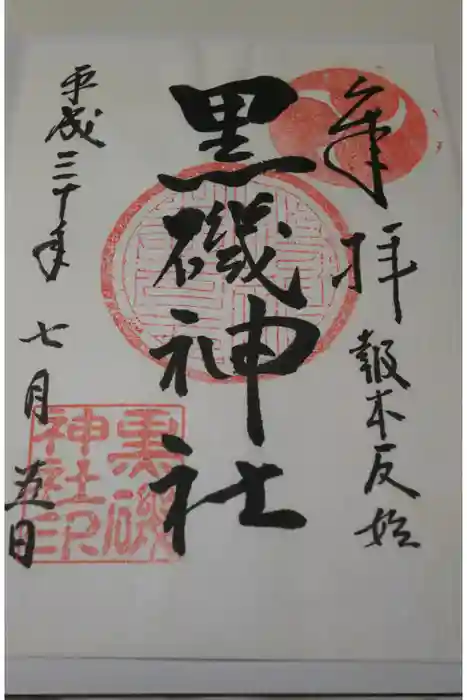 奉拝
報本反始
黒磯神社
平成三十年
七月五日
黒磯
神社印